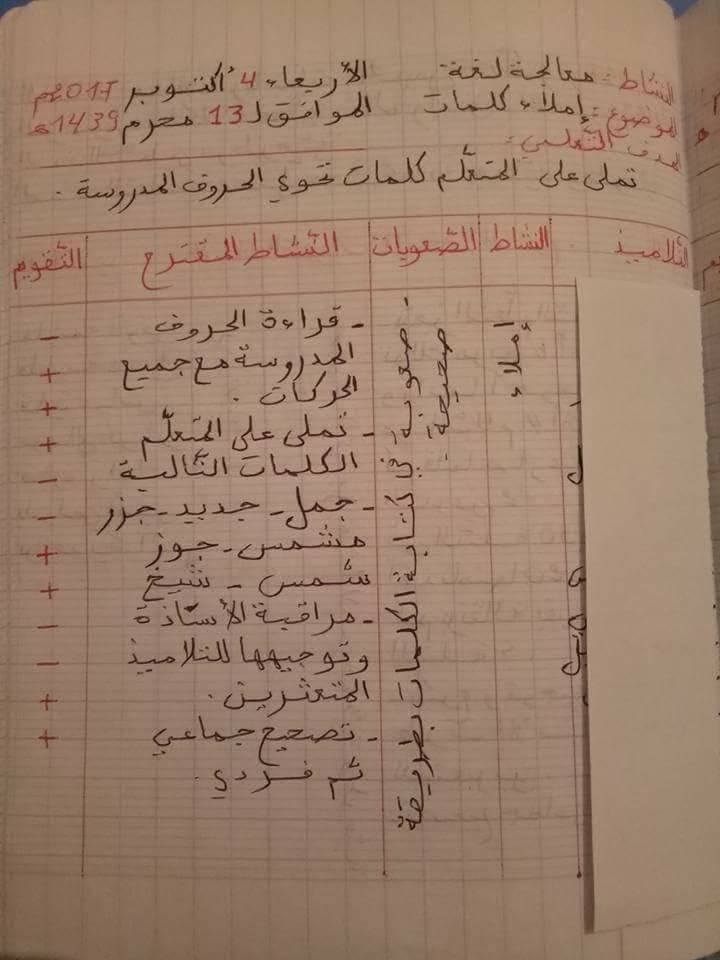 النشاط: معالجة لغة الأربعاء 4 أكتوبر 2017م
الموضوع: إملاء كلمات الموافق لـ 13 محرم 1439هـ
الهدف التعلمي:
تملى على المتعلّم كلمات تحوي الحروف المدروسة.
التلاميذ النشاط الصّعوبات النّشاط المقترح التّقويم
إملاء
- صعوبة في كتابة الكلمات بطريقة
صحيحة.
- قراءة الحروف -
المدروسة مع جميع +
الحركات. +
- تملى على المتعلّم +
الكلمات التّالية -
- جمل - جديد - جزر -
مشمس - جوز +
شمس - شيخ +
- مراقبة الأستاذة -
وتوجيهها للتلاميذ -
المتعثرين. +
- تصحيح جماعي +
ثم فردي.